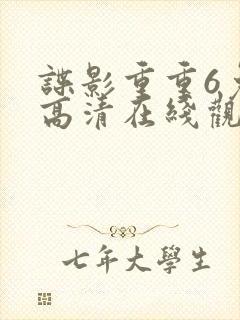 諜影重重6
高清在綫觀
七年大學生